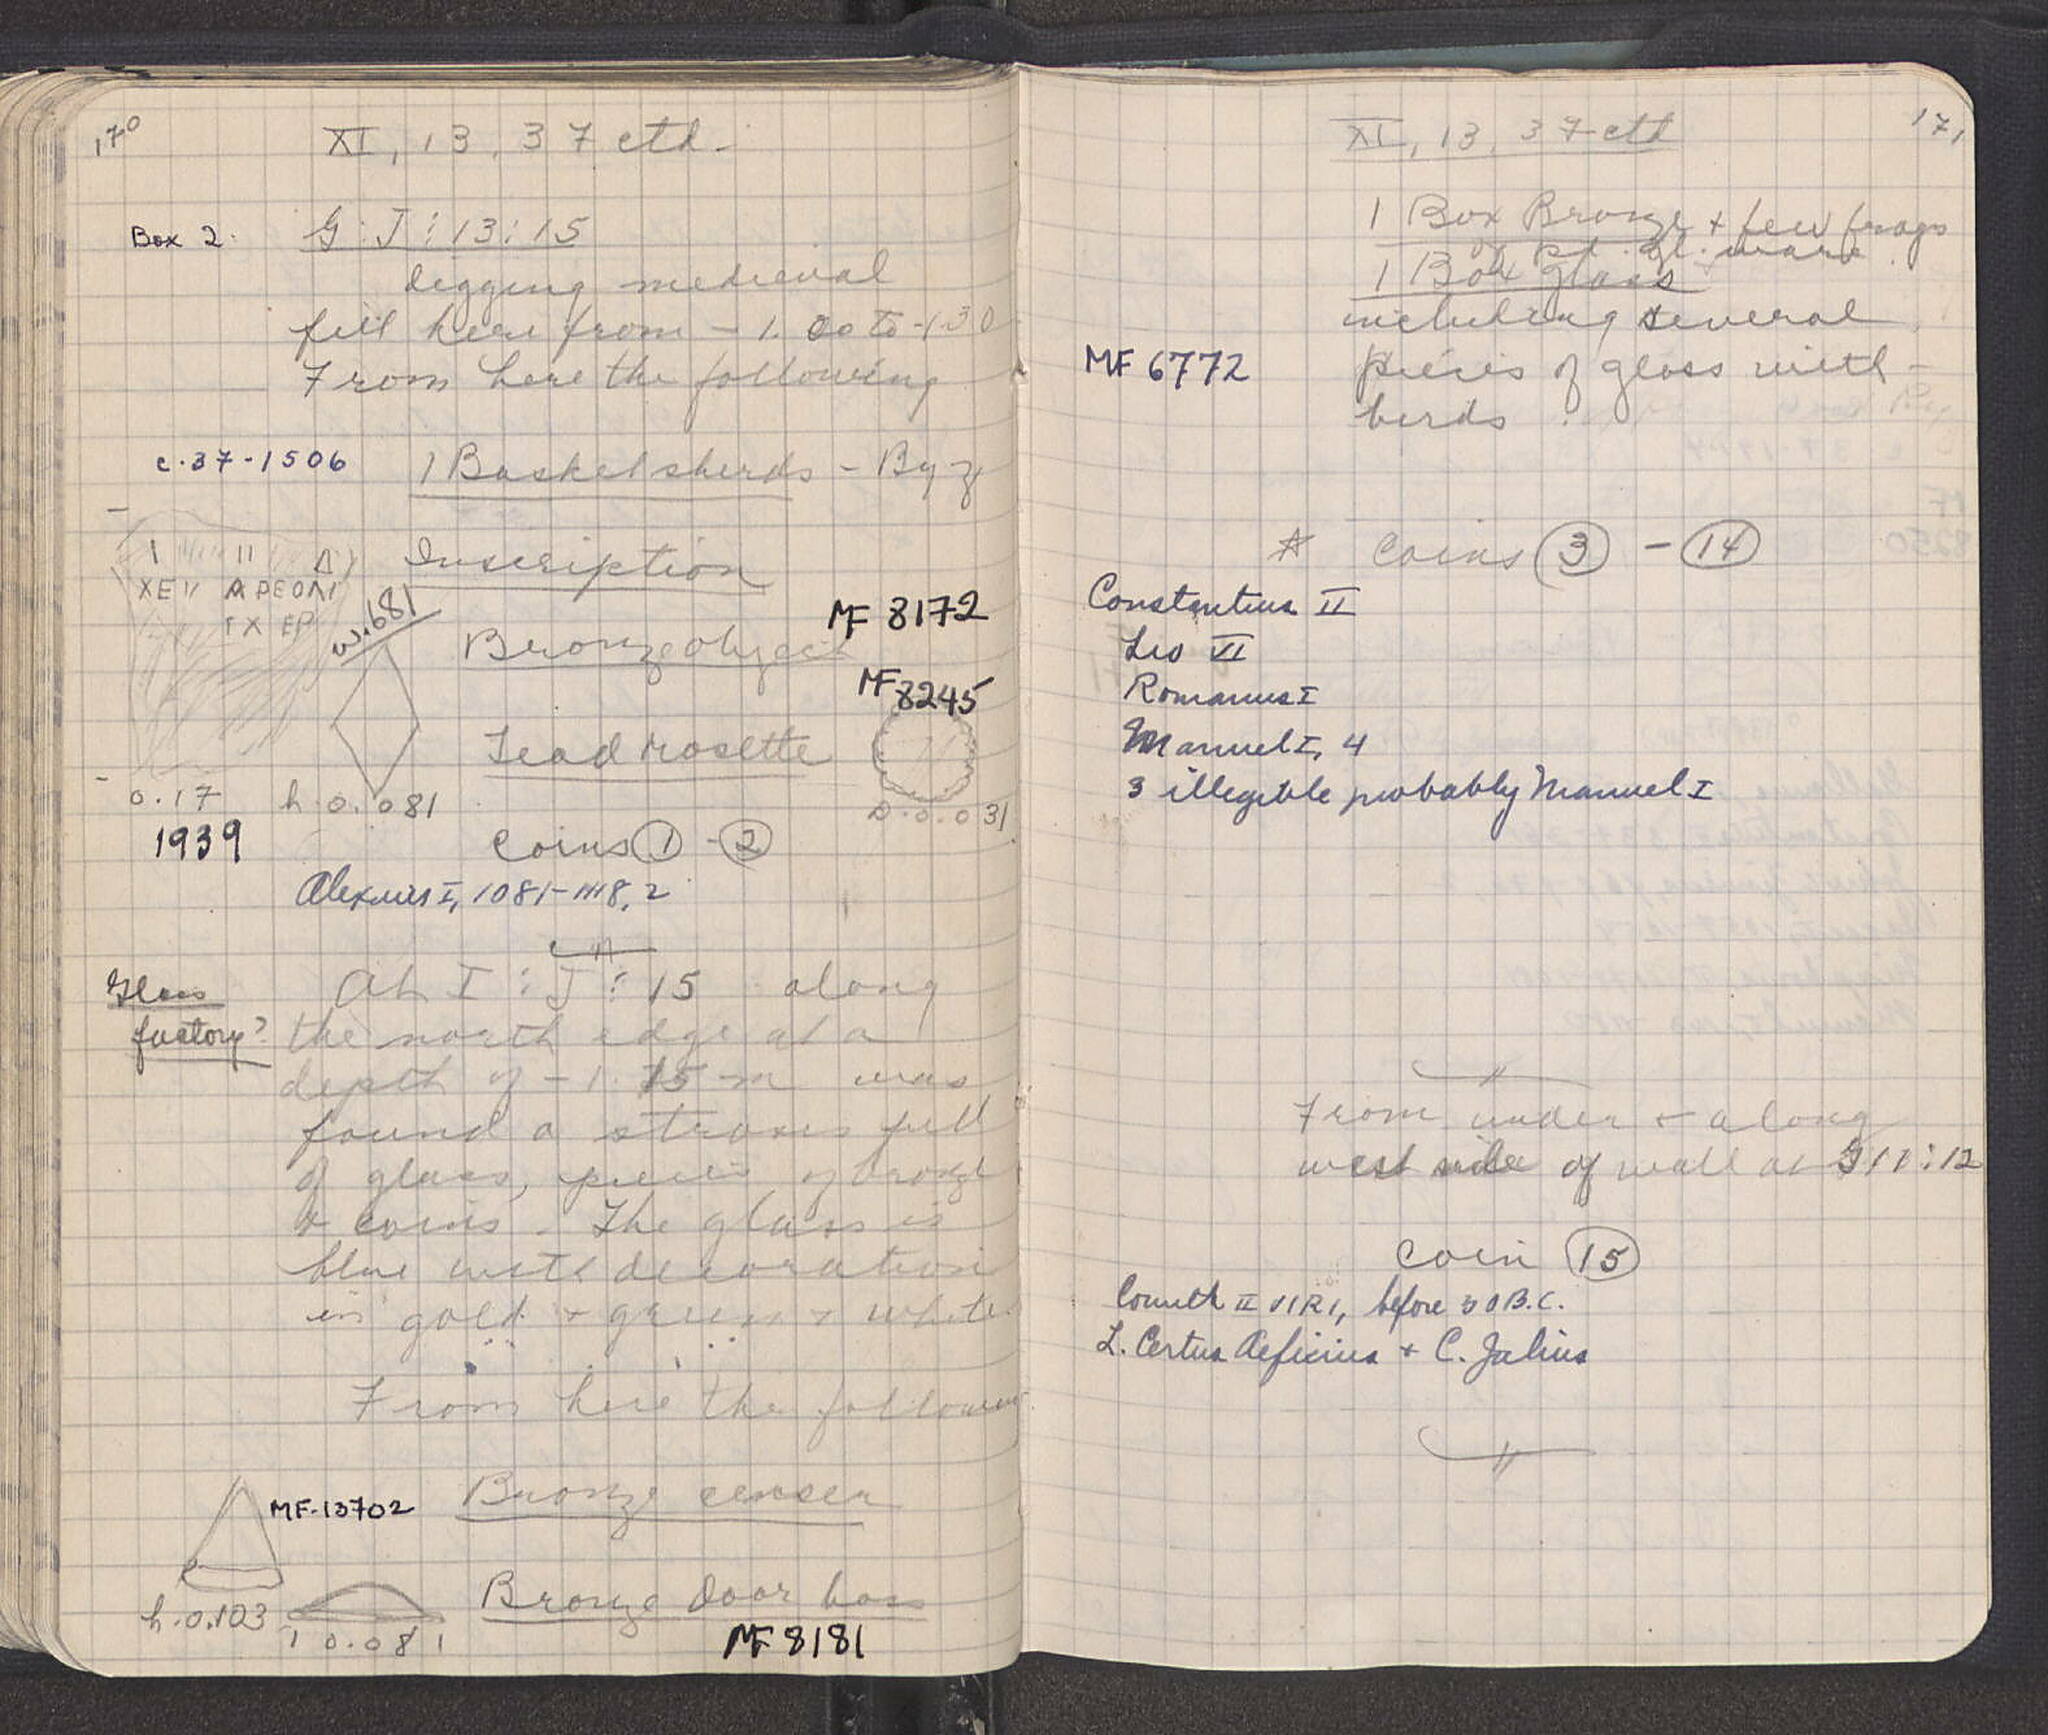 170
XI, 13, 37 ctd.
Box 2. G:J:13:15
digging medieval
fill here from -1.00 to -1.30
From here the following
c.37-1506 1 Basket sherds - Byz
Inscription
I II Δ
XE II APEOΠI
ΓX EP
w.681
Bronze object MF 8172
MF 8245
Lead rosette
0.17 h 0.081 D.0.031
1939
Coins 1 - 2
Alexius I, 1081-1118, 2
Glass factory?
At I:J:15 along
the north edge at a
depth of -1.15 m was
found a stroses full
of glass, pieces of bronze
& coins. The glass is
blue with decoration
in gold & green & white.
From here the following
MF-13702 Bronze censer
h.0.103
Bronze door boss
0.081
MF 8181
171
XI, 13, 37 ctd
1 Box Bronze + few frags
of pt. gl. ware
1 Box glass
including several
MF 6772 pieces of glass with
birds.
Coins 3 - 14
Constantius II
Leo VI
Romanus I
Manuel I, 4
3 illegible probably Manuel I
From under & along
west side of wall at G11:12
Coin 15
Corinth II VIRI, before 30 B.C.
L. Certus Aeficius + C. Julius